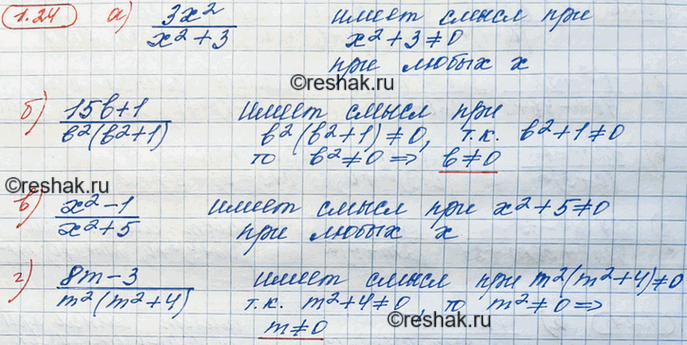 1.24 а) 3x²/(x²+3) имеет смысл при
x²+3≠0
при любых x
©reshak.ru
б) (15в+1)/(в²(в²+1)) имеет смысл при
в²(в²+1)≠0, т.к. в²+1≠0
то в²≠0 ⇒ в≠0
©reshak.ru
в) (x²-1)/(x²+5) имеет смысл при x²+5≠0
при любых x
г) (8m-3)/(m²(m²+4)) имеет смысл при m²(m²+4)≠0
т.к. m²+4≠0, то m²≠0 ⇒
m≠0
©reshak.ru